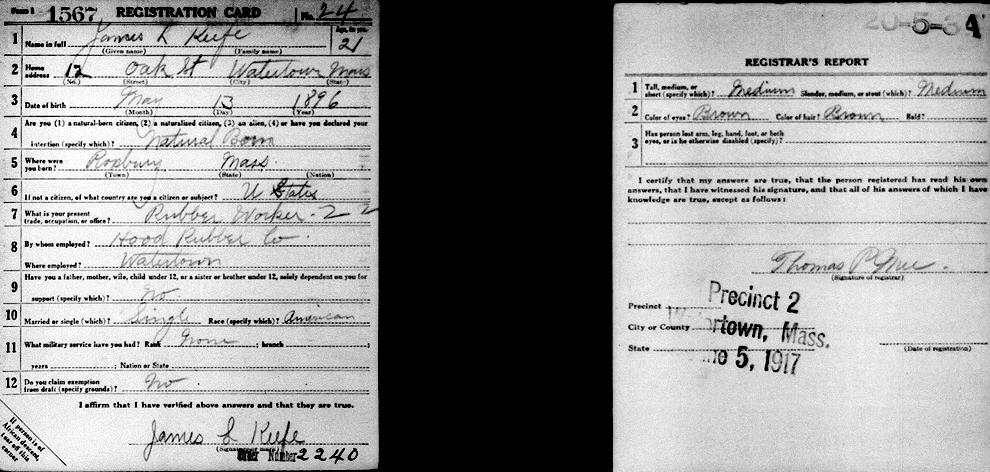 Form 1 1567 REGISTRATION CARD No. 24
1 Name in full James L Keefe Age, in yrs. 21
(Given name) (Family name)
2 Home address 12 Oak St Watertown Mass
(No.) (Street) (City) (State)
3 Date of birth May 13 1896
(Month) (Day) (Year)
4 Are you (1) a natural-born citizen, (2) a naturalized citizen, (3) an alien, (4) or have you declared your
intention (specify which)? Natural Born
5 Where were you born? Roxbury Mass.
(Town) (State) (Nation)
6 If not a citizen, of what country are you a citizen or subject? U States
7 What is your present trade, occupation, or office? Rubber Worker - 22
8 By whom employed? Hood Rubber Co.
Where employed? Watertown
9 Have you a father, mother, wife, child under 12, or a sister or brother under 12, solely dependent on you for
support (specify which)? No.
10 Married or single (which)? Single Race (specify which)? American
11 What military service have you had? Rank None ; branch ;
years ; Nation or State
12 Do you claim exemption from draft (specify grounds)? No.
I affirm that I have verified above answers and that they are true.
James L Keefe
(Signature or mark)
Order Number 2240
If person is of
African descent,
tear off this
corner
20-5-3 A
REGISTRAR'S REPORT
1 Tall, medium, or short (specify which)? Medium Slender, medium, or stout (which)? Medium
2 Color of eyes? Brown Color of hair? Brown Bald?
3 Has person lost arm, leg, hand, foot, or both
eyes, or is he otherwise disabled (specify)?
I certify that my answers are true, that the person registered has read his own
answers, that I have witnessed his signature, and that all of his answers of which I have
knowledge are true, except as follows:
Thomas P.
(Signature of registrar)
Precinct Precinct 2
City or County Watertown, Mass.
State June 5, 1917
(Date of registration)